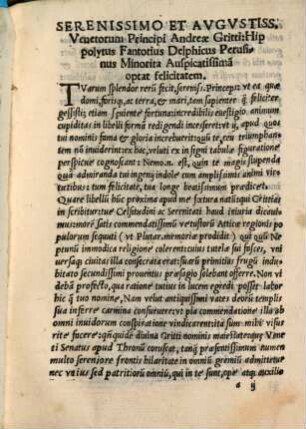 SERENISSIMO ET AVGVSTISS.
Venetorum Principi Andreæ Gritti: Hip
polytus Fantotius Delphicus Perusi-
nus Minorita Auspicatissimã
optat felicitatem.
TVarum splendor rerũ fecit, sereniss. Princeps: vt ea quæ
domi, forisq; ac terra, & mari, tam sapienter q̃ feliciter
gessisti; etiam spirante fortuna: incredibili euestigio, animum
cupiditas in libelli formã redigendi incesserit: vt ij, apud quos
tui nominis fama & gloria increbuerit: quũ te, ceu triumphan-
tem nõ inuiderint: huc, relati ex in signi tabulæ figuratione
perspicue cognoscant: Nemo.n. est, quin te magis stupenda
quã admiranda tui ingenij indole tum amplissimi animi vir-
tutibus: tum felicitate, tua longe beatissimum prædicet.
Quare libelli huc proxima apud me fœtura natiuq; Gritti-as
in scribitur: tuæ Celsitudini ac Serenitati haud iniuria dicauj-
musimore satis commodadissimũ vetustorũ Atticæ regionis po
pulorum sequuti (vt Plutar. memoriæ prodidit) qui quũ Ne
ptunũ immodica religione colerent: cuius tutela sui juscos, vni
versasq; ciuitas illa consecrata erat: suarũ primitias frugũ indu-
bitato fecundissimi prouentus præsagio solebant offerre. Non vi
debã profecto, qua ratione tutius in lucem egredi posset labor
hic, q̃ tuo nomine, Nam velut antiquissimi vates deorũ templis
sua inferre carmina consueuerũt: vt pia commendatione illa ab
omni inuidorum conspiratione vindicarent: ita sum mihi visus
rite facere: q̃n quide diuina Gritti nominis maiestatreq; Vene
ti Senatus apud Thronũ coruscat, tanq; præsentissimum numen
multo serenjore frontis hilaritate in omniũ gremiũ admittetur
nec vsius sed patritiorũ omniũ, qui in te sunt, ope atq; auxilio
a ij